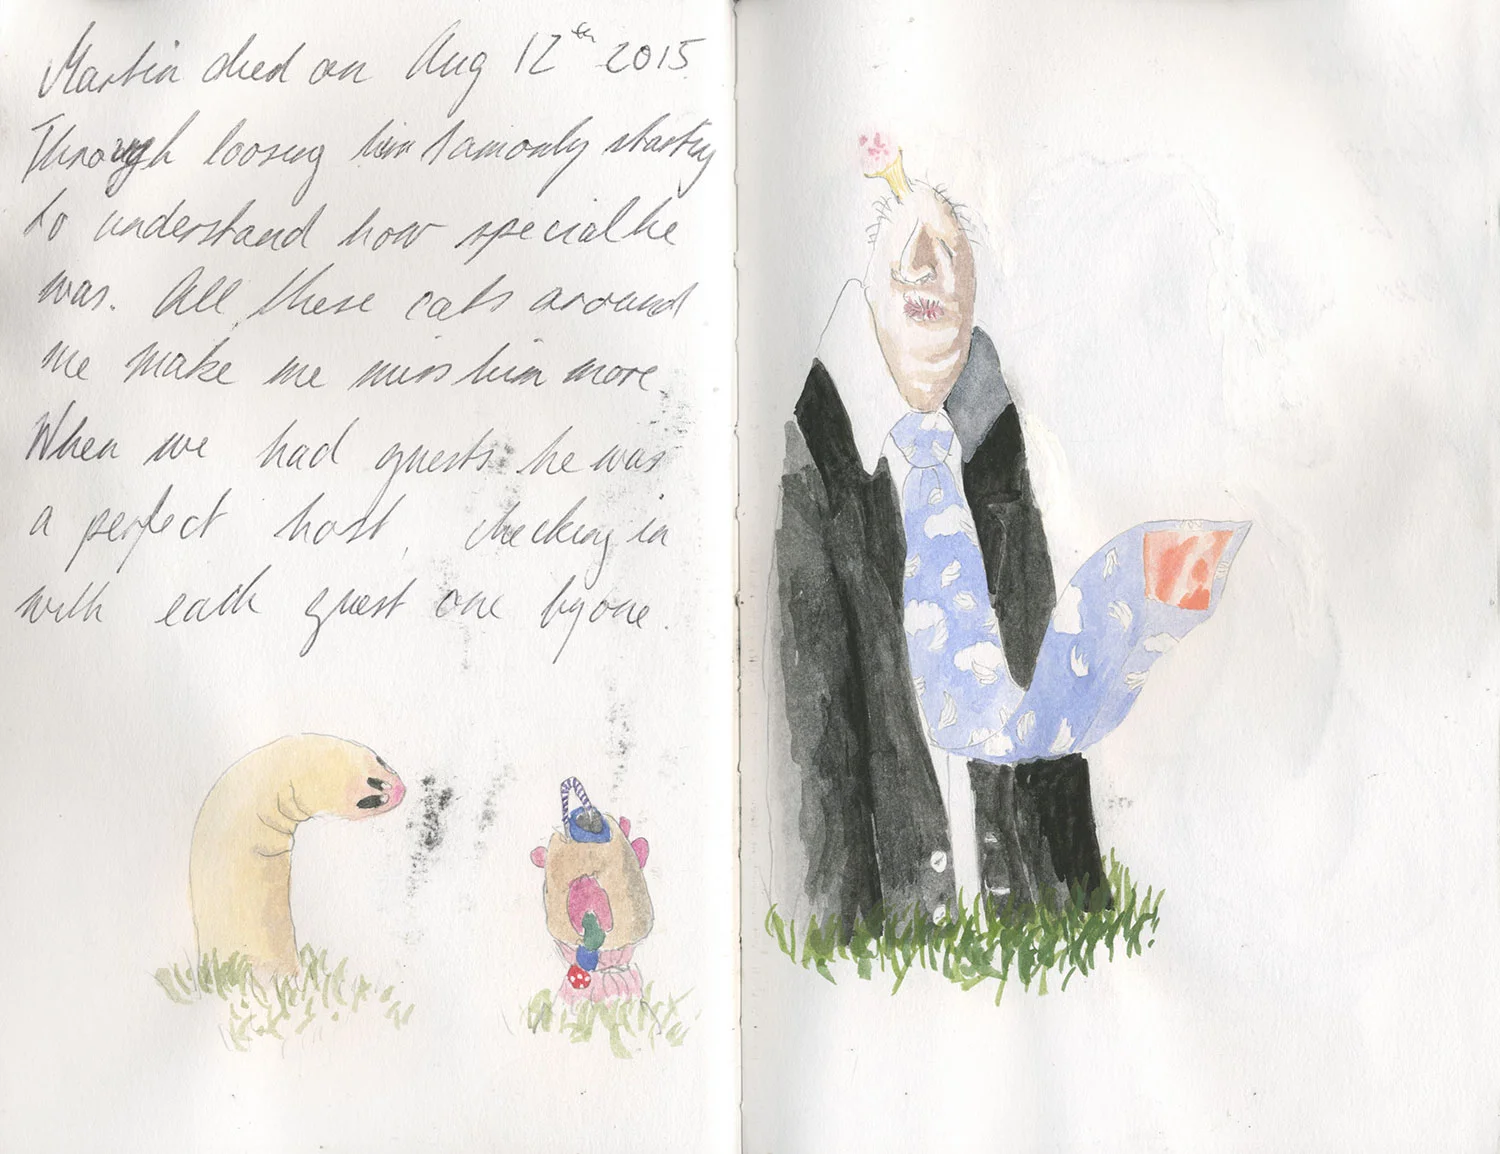 Martin died on Aug 12th 2015.
Through loosing him I am only starting
to understand how special he
was. All these cats around
me make me miss him more.
When we had guests he was
a perfect host, checking in
with each guest one by one.